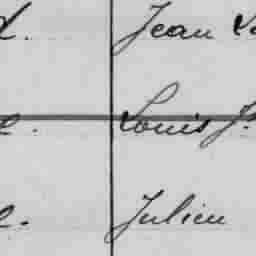 d. Jean
e. Louis J.
e. Julien